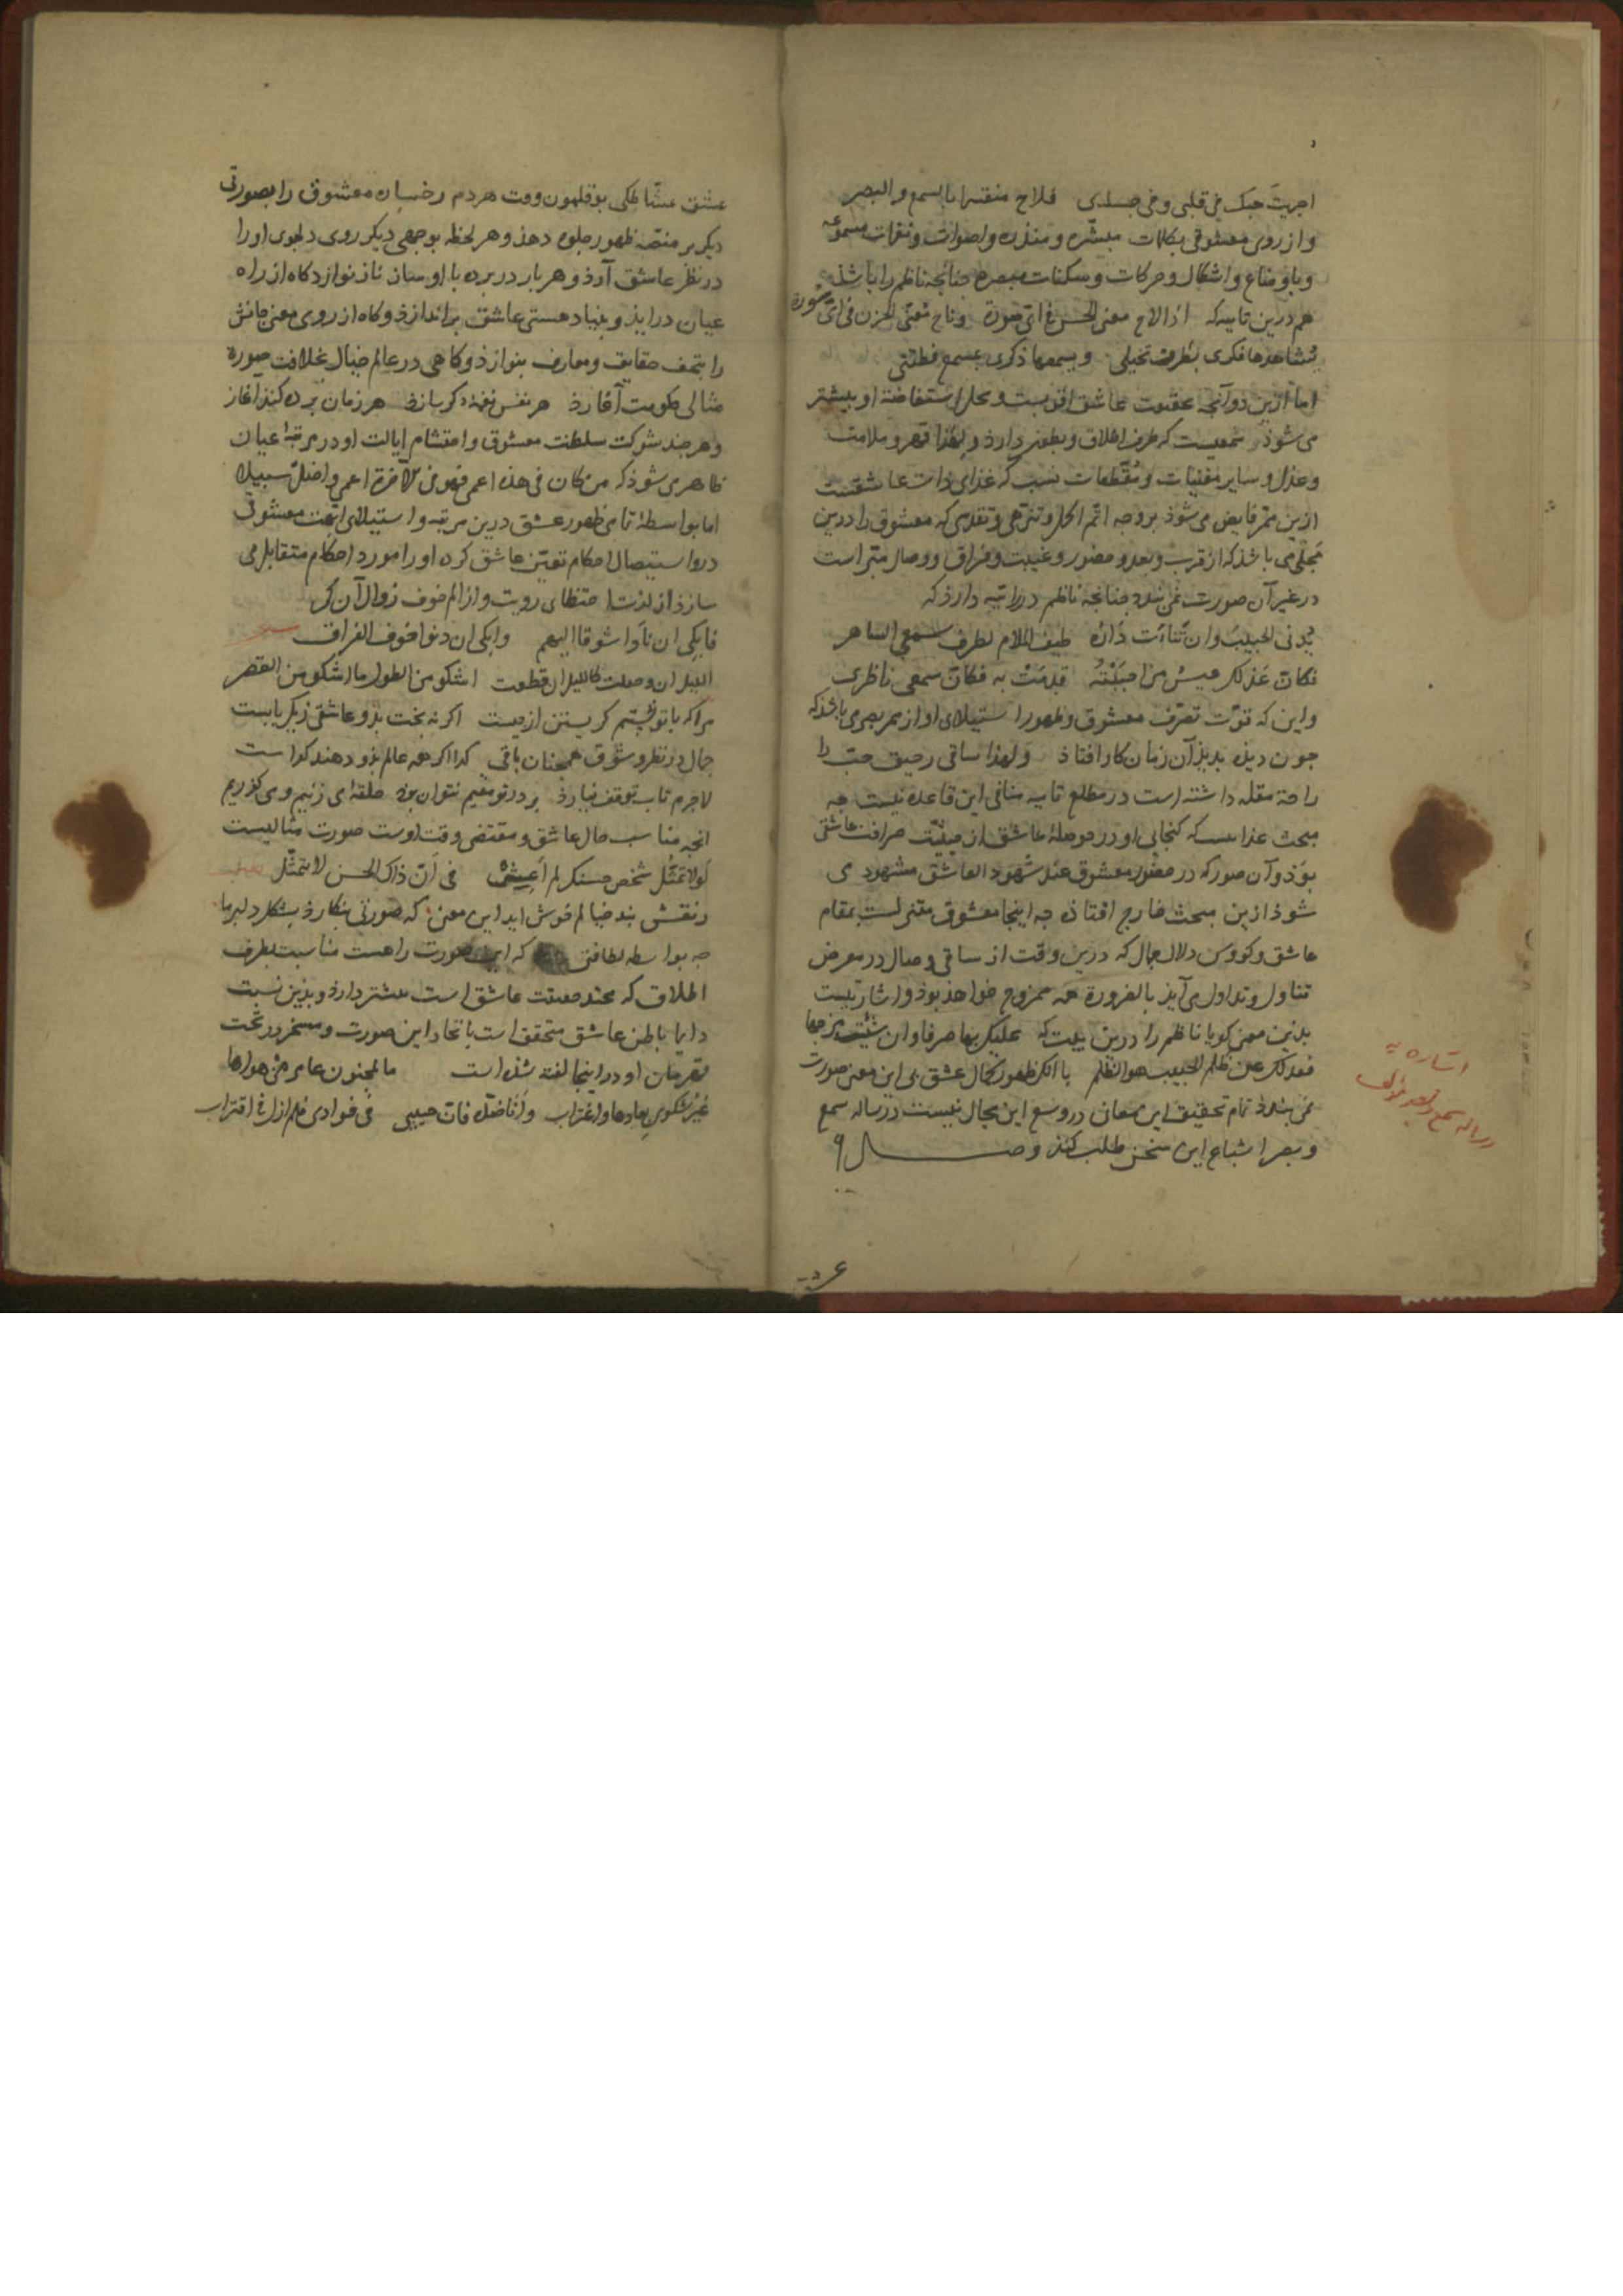 اجریت حبک فی قلبی و فی جسدی فلاح منقسما بالسمع والبصر
و از روی معشوقی بکلمات مبشّره و منذره و اصوات و نغمات مسموعه
و باوضاع و اشکال و حرکات و سکنات مبصره چنانچه ناظم را باشذ
هم درین تاییه که اذا لاح معنی الحسن فی ای صورة و ناح معنّی الحزن فی ای سورة
یشاهدها فکری بطرف تخیلی و یسمعها ذکری بمسمع فطنتی
اما ازین دو آنچه بحقیقت عاشق اقربست و محل استفاضهٔ او بیشتر
می شوذ سمعیست که طرف اطلاق و بطون دارذ و لهذا قهر و ملامت
و عذل و سایر مفنیات و مقطعات نسب که غذای ذات عاشقست
ازین ممر فایض می شوذ بر وجه اتم اکل و تنزهی و تقدسی که معشوق را درین
مجلی می باشذ که از قرب و بعد و حضور و غیبت و فراق و وصال مبراست
در غیر آن صورت نمی بندد چنانچه ناظم در راییه دارذ که
یدنی الحبیب و ان تناءت داره طیف الملام لطرف سمعی الساهر
فکان عذلک عیس من احببته قدمت به فکان سمعی ناظری
و این که قوّت تصرف معشوق و ظهور استیلای او از ممر بصری باشذ که
چون دیذه بدیذ آن زمان کار افتاذ و لهذا ساقی رحیق حب را
راحة مقله داشته است در مطلع تاییه منافی این قاعده نیست چه
مبحث غذاییست که گنجایی او در حوصلهٔ عاشق از حیثیت صرافت عاشقی
بوذ و آن صور که در حضور معشوق عند شهود العاشق مشهود می
شوذ ازین مبحث خارج افتاذه چه اینجا معشوق متنزلست بمقام
عاشق و کووس دلال جمال که درین وقت از ساقی وصال در معرض
تناول و تداول می آیذ بالضرورة همه ممزوج خواهذ بوذ و اشارتیست
بدین معنی گویا ناظم را درین بیت که علیک بها صرفا و ان شئت مزجها
فعدلک عن ظلم الحبیب هو الظلم با آنک ظهور کمال عشق بی این معنی صورت
نمی بندد تمام تحقیق این معانی در وسع این مجال نیست در رساله سمع
و بصر اشباع این سخن طلب کنذ وصــــال ۹
اشاره به
رساله سمع و بصر مؤلف
عشق مشاطگی بوقلمون وقت هر دم رخسارهٔ معشوق را بصورتی
دیگر بر منصه ظهور جلوه دهذ و هر لحظه بوجهی دیگر روی دلجوی او را
در نظر عاشق آرذ و هر بار در پرده با او ساز ناز نوازد گاه از راه
عیان درآیذ و بنیاد هستی عاشق براندازذ و گاه از روی معنی جانش
را بتحف حقایق و معارف بنوازذ و گاهی در عالم خیال بخلافت صورة
مثالی حکومت آغازذ هر نفس نغمهٔ دگر سازذ هر زمان پرده کنذ آغاز
و هر چند شوکت سلطنت معشوق و احتشام ایالت او در مرتبهٔ عیان
ظاهر می شوذ که من کان فی هذه اعمی فهو فی الآخرة اعمی و اضل سبیلا
اما بواسطهٔ تمامی ظهور عشق درین مرتبه و استیلای نعت معشوق
در استیصال احکام تعین عاشق کرده او را مورد احکام متقابل می
سازذ از لذت احتظای رویت و از الم خوف زوال آن کی
فابکی ان ناوا شوقا الیهم و ابکی ان دنوا خوف الفراق
اللیل ان وصلت کاللیل ان قطعت اشکو من الطول ما اشکو من القصر
مرا که با تو نچشم گریستن ازمیست اگر نه بخت بذو عاشقی زیک بابست
جمال در نظر و شوق همچنان باقی گدا اگر همه عالم بذو دهند گداست
لاجرم تاب توقف نیارذ بر در تو مقیم نتوان بود حلقه‌ای زنیم و می گذریم
آنچه مناسب حال عاشق و مقتضی وقت اوست صورت مثالیست
لولا تمثل شخص حسنک لم اعش فی انّ ذاک الحسن لا یتمثّل
ز نقش بند خیالم خوش آید این معنی که صورتی بنگارذ بشکل دلبر ما
چه بواسطه لطافتی که این صورت راهست مناسبت بطرف
اطلاق که محتد حقیقت عاشق است بیشتر دارذ و بذین نسبت
دایما باطن عاشق متحقق است باتحاد این صورت و مسخر در تحت
قهرمان او و در اینجا گفته شذه است ما لمجنون عامر من هواها
غیر شکوی بعادها و اغتراب و انا ضده فان حبیبی فی فوادی فلم ازل فی اقتراب